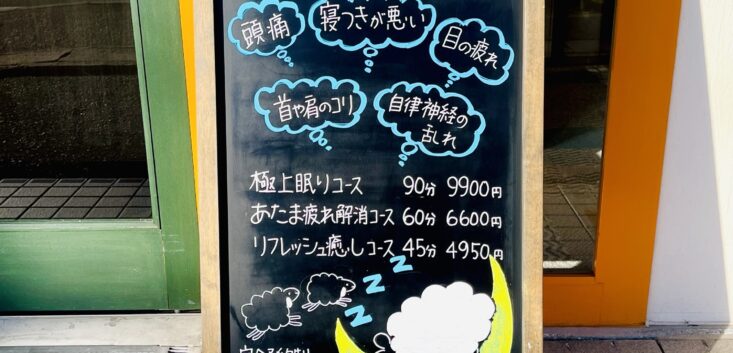 頭痛
寝つきが悪い
目の疲れ
首や肩のコリ
自律神経の
乱れ
極上眠りコース 90分 9900円
あたま疲れ解消コース 60分 6600円
リフレッシュ癒しコース 45分 4950円
z z z